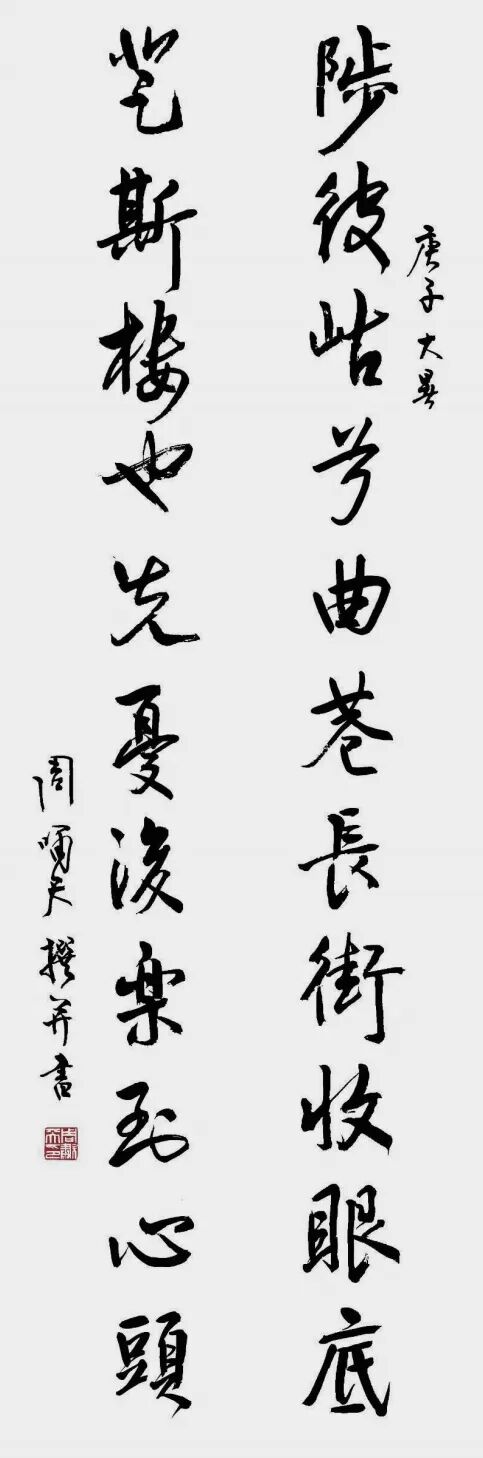 庚子大暑
陟彼岵兮曲巷長街收眼底
登斯樓也先憂後楽到心頭
周嘯天撰并書